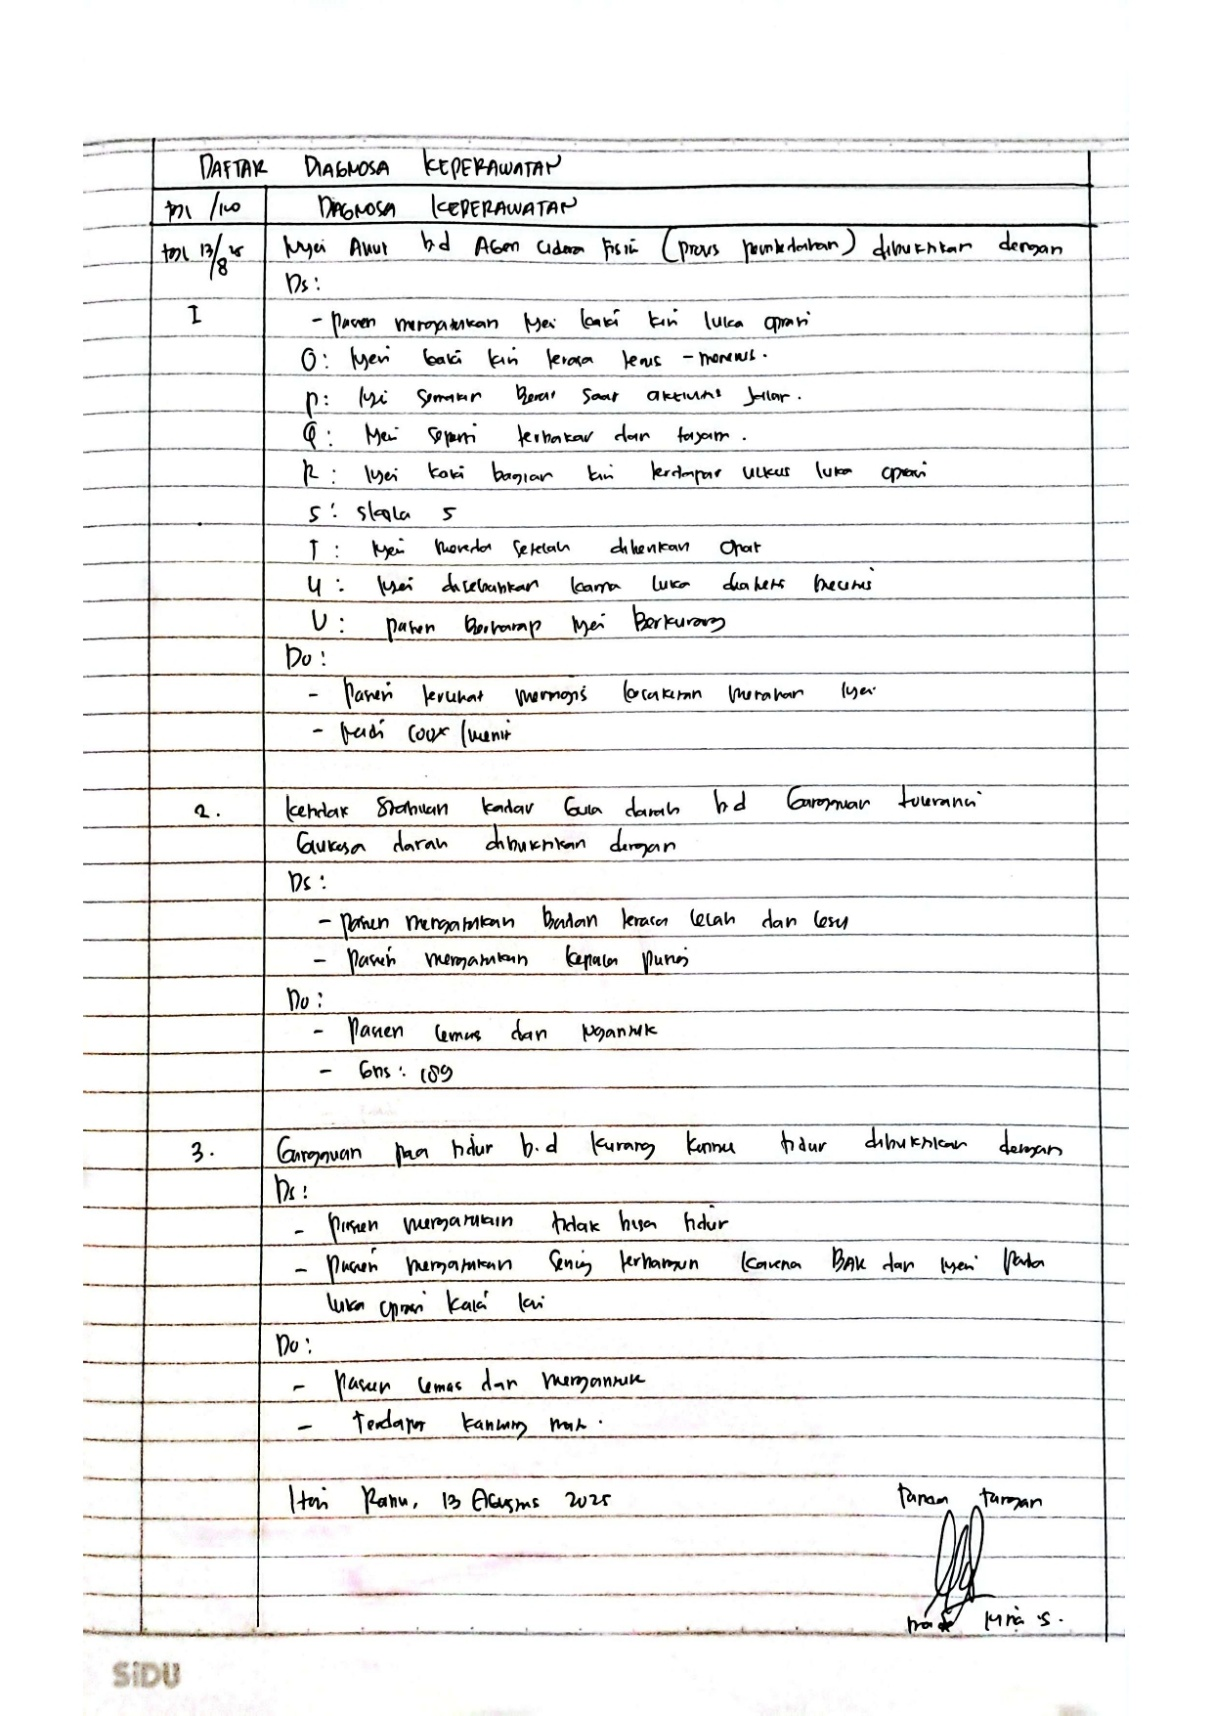 DAFTAR DIAGNOSA KEPERAWATAN
tgl /no DIAGNOSA KEPERAWATAN
tgl 13/8 25 Nyeri Akut bd Agen cidera fisik (proses pembedahan) dibuktikan dengan
Ds:
I - pasien mengatakan nyeri kaki kiri luka operasi
O: Nyeri kaki kiri terasa terus - menerus.
P: Nyeri semakin berat saat aktivitas jalan.
Q: Nyeri seperti terbakar dan tajam.
R: Nyeri kaki bagian kiri terdapat ulkus luka operasi
S: skala 5
T: Nyeri mereda setelah diberikan obat
U: Nyeri disebabkan karna luka diabetes melitus
V: pasien berharap nyeri Berkurang
Do:
- pasien terlihat meringis kesakitan menahan nyeri
- nadi 100x/menit
2. Ketidak Stabilan kadar Gula darah bd Gangguan toleransi
Glukosa darah dibuktikan dengan
Ds:
- pasien mengatakan Badan terasa lelah dan lesu
- pasien mengatakan kepala pusing
Do:
- Pasien lemas dan ngantuk
- GDS: 189
3. Gangguan pola tidur b.d kurang kontrol tidur dibuktikan dengan
Ds:
- pasien mengatakan tidak bisa tidur
- pasien mengatakan sering terbangun karena BAK dan nyeri pada
luka operasi kaki kiri
Do:
- pasien lemas dan mengantuk
- terdapat kantung mata.
Hari Rabu, 13 Agustus 2025 tanda tangan
SiDU